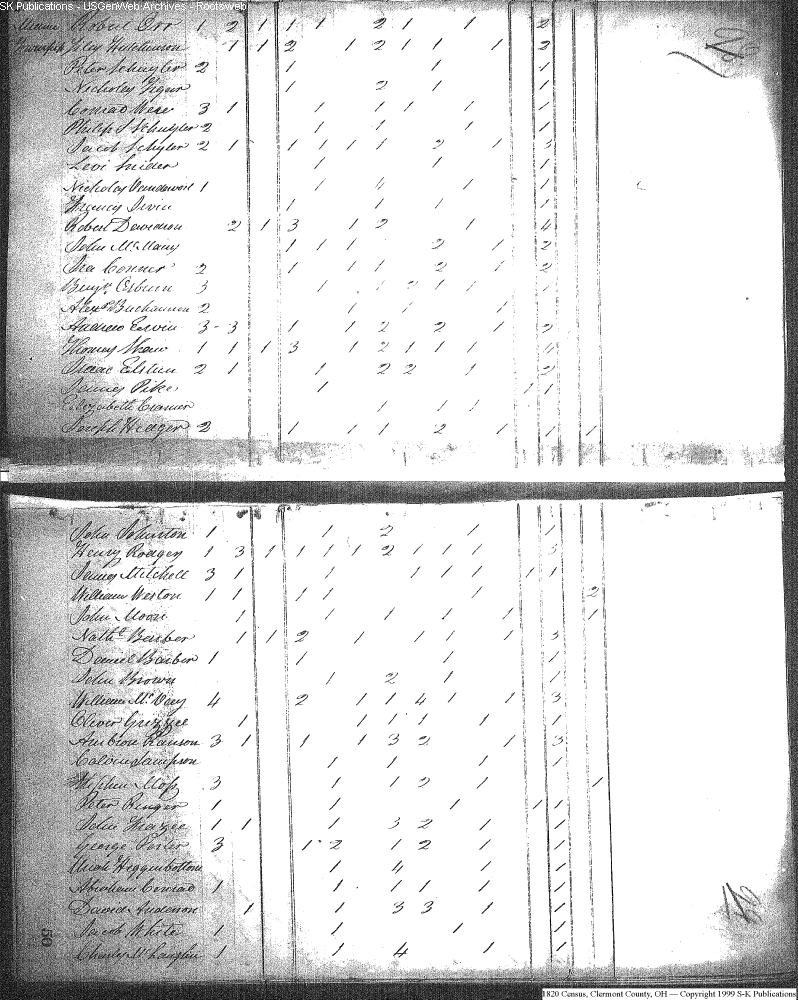 SK Publications - USGenWeb Archives - Rootsweb
Robert Orr 1 2 1 1 1 2 1 1 2
Hutchinson 1 1 2 1 2 1 1 1
Peter Schuyler 2 1 1 1
Nicholas 1 2 1 1
Conrad Were 3 1 1 1 1 1 1
Philip S Schuyler 2 1 1 1 1
Jacob Schyler 2 1 1 1 1 1 1 2 1 3
Levi Snider 1 1 1
Nicholas 1 1 4 1 1
Francis Irvin 1 1 1 1
Robert Davidson 2 1 3 1 2 1 4
John McMany 1 1 1 2 1 2
Ira Conner 2 1 1 1 2 1 2
Benjn Osburn 3 1 1 2 1 1 1
Alexr Buchannon 2 1 1 1
Andrew Ervin 3 - 3 1 1 2 2 1 2
Thomas Shaw 1 1 1 3 1 2 1 1 1 4
Isaac Elstun 2 1 1 2 2 1 2
James Pike 1 1 1
Elizabeth Cramer 1 1 1
Joseph Hedger 2 1 1 1 2 1 1 1
John Johnston 1 1 2 1 1
Henry Rodgers 1 3 1 1 1 1 2 1 1 1 3
James Mitchell 3 1 1 1 1 1 1 1
William Weston 1 1 1 1 1 2
John Moore 1 1 1 1 1 1
Nathl Barber 1 1 2 1 1 1 1 3
Daniel Barber 1 1 1 1
John Brown 1 2 1 1
William McVay 4 2 1 1 4 1 1 3
Oliver Grizzee 1 1 1 1 1 1
Ambrose Ranson 3 1 1 1 3 2 1 3
Calvin Sampson 1 1 1 1
Stephen Moss 3 1 1 2 1 1
Peter Ringer 1 1 1 1 1
John 1 1 1 3 2 1 1
George Porter 3 1 2 1 2 1 1
Uriah Higginbottom 1 4 1 1
Abraham Conrad 1 1 1 1 1 1
David Anderson 1 1 3 3 1 1
Jacob White 1 1 1 1
Charles McLaughlin 1 1 4 1 1
50
1820 Census, Clermont County, OH — Copyright 1999 S-K Publications